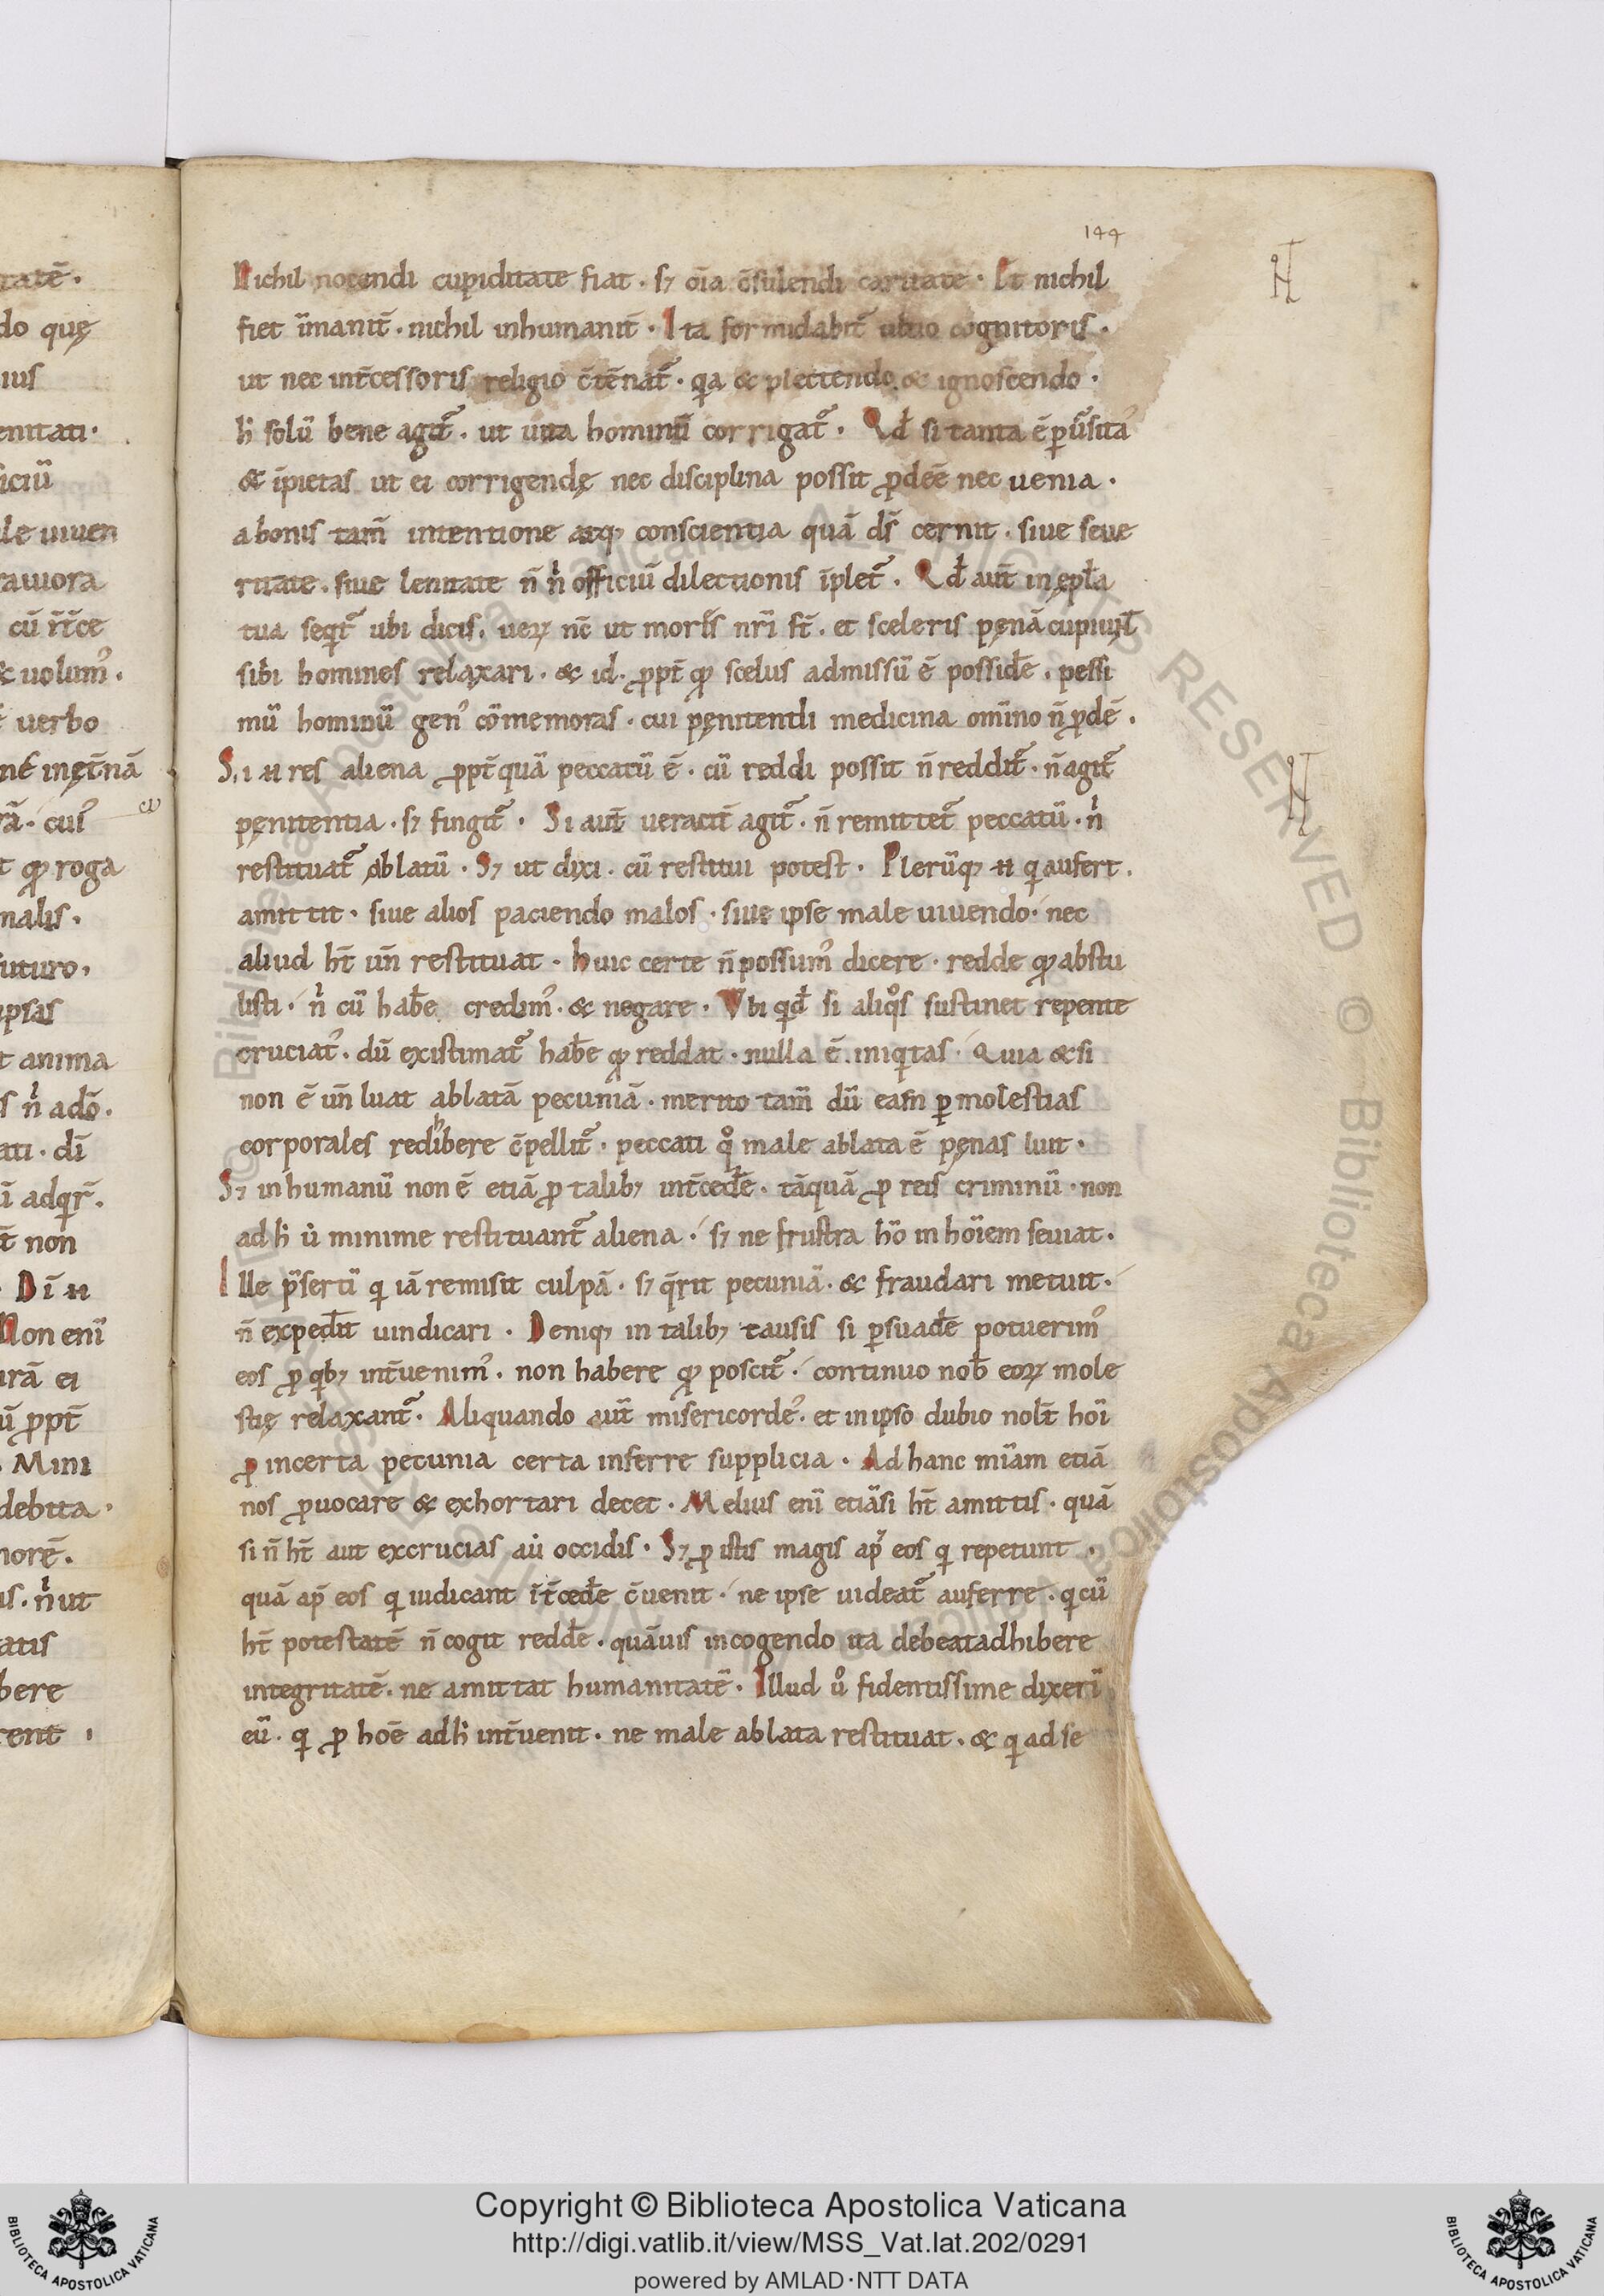 144
Nichil nocendi cupiditate fiat · sꝫ om̅ia c̅sulendi caritate · Et nichil
fiet i̅manit̅ · nichil inhumanit̅ · Ita formidabit᷑ ultio cognitoris ·
ut nec int̅cessoris religio c̅te̅nat᷑ · qa & plectendo & ignoscendo ·
h̓ solu̅ bene agit᷑ · ut uita hominu̅ corrigat᷑ · Qd̅ si tanta e̅ ꝑu̅sitaꝰ
& i̅pietas ut ei corrigendę nec disciplina possit ꝓdee̅ nec uenia ·
a bonis tam̅ intentione atqꝫ conscientia qua̅ ds̅ cernit · siue seue
ritate · siue lenitate n̅ n̓ officiu̅ dilectionis i̅plet᷑ · Qd̅ aut̅ in ępl̅a
tua seqit᷑ ubi dicis · ueꝝ nc̅ ut mor̅s nr̅i st̅ · et sceleris pęna̅ cupiu̅t
sibi homines relaxari · & id · ꝓpt̅ qꝫ scelus admissu̅ e̅ posside̅ · pessi
mu̅ hominu̅ genꝰ co̅memoras · cui pęnitendi medicina om̅ino n̅ ꝓde̅ ·
Si n res aliena ꝓpt̅ qua̅ peccatu̅ e̅ · cu̅ reddi possit n̅ reddit᷑ · n̅ agit᷑
pęnitentia · sꝫ fingit᷑ · Si aut̅ ueracit̅ agit᷑ · n̅ remittet᷑ peccatu̅ · n̓
restituat᷑ ablatu̅ · Sꝫ ut dixi · cu̅ restitui potest · Pleru̅qꝫ n q aufert ·
amittit · siue alios paciendo malos · siue ipse male uiuendo · nec
aliud ht̅ un̅ restituat · huic certe n̅ possumꝰ dicere · redde qꝫ abstu
listi · n̓ cu̅ habe̅ credimꝰ · & negare · Vbi qd̅ si aliqͦs sustinet repente
cruciatꝰ · du̅ existimat᷑ habe̅ qꝫ reddat · nulla e̅ · iniqitas · Quia & si
non e̅ un̅ luat ablata̅ pecunia̅ · merito tam̅ du̅ eam̅ ꝑ molestias
corporales redhibere c̅pellit᷑ · peccati qͦ male ablata e̅ pęnas luit ·
Sꝫ inhumanu̅ non e̅ etia̅ ꝓ talibꝫ int̅cede̅ · ta̅qua̅ ꝓ reis criminu̅ · non
ad h̓ ut minime restituant᷑ aliena · sꝫ ne frustra ho̅ in ho̅iem seuiat ·
Ille p̅sertī q ia̅ remisit culpa̅ · sꝫ q̅rit pecunia̅ · & fraudari metuit ·
n̅ exped̅it uindicari · Deniqꝫ in talibꝫ causis si ꝑsuade̅ potuerimꝰ
eos ꝓ qibꝫ int̅uenimꝰ · non habere qꝫ poscit᷑ · continuo nob̅ eoꝝ mole
stię relaxant᷑ · Aliquando aut̅ misericordeꝰ · et in ipso dubio nolt̅ ho̅i
ꝓ incerta pecunia certa inferre supplicia · Ad hanc mi̅am etia̅
nos ꝓuocare & exhortari decet · Melius eni̅ etia̅si ht̅ amittis · qua̅
si n̅ ht̅ aut excrucias au̇ occidis · Sꝫ ꝓ istis magis ap̅ eos q repetunt ·
qua̅ ap̅ eos q iudicant i̅t̅cede̅ c̅uenit · ne ipse uideat᷑ auferre · q cu̅
ht̅ potestate̅ n̅ cogit redde̅ · qua̅uis in cogendo ita debeat adhibere
integritate̅ · ne amittat humanitate̅ · Illud uͦ fidentissime dixeri̅
eu̅ · q ꝓ hoe̅ ad h̓ int̅uenit · ne male ablata restituat · & q ad se
Copyright © Biblioteca Apostolica Vaticana
http://digi.vatlib.it/view/MSS_Vat.lat.202/0291
powered by AMLAD·NTT DATA
BIBLIOTECA APOSTOLICA VATICANA
BIBLIOTECA APOSTOLICA VATICANA